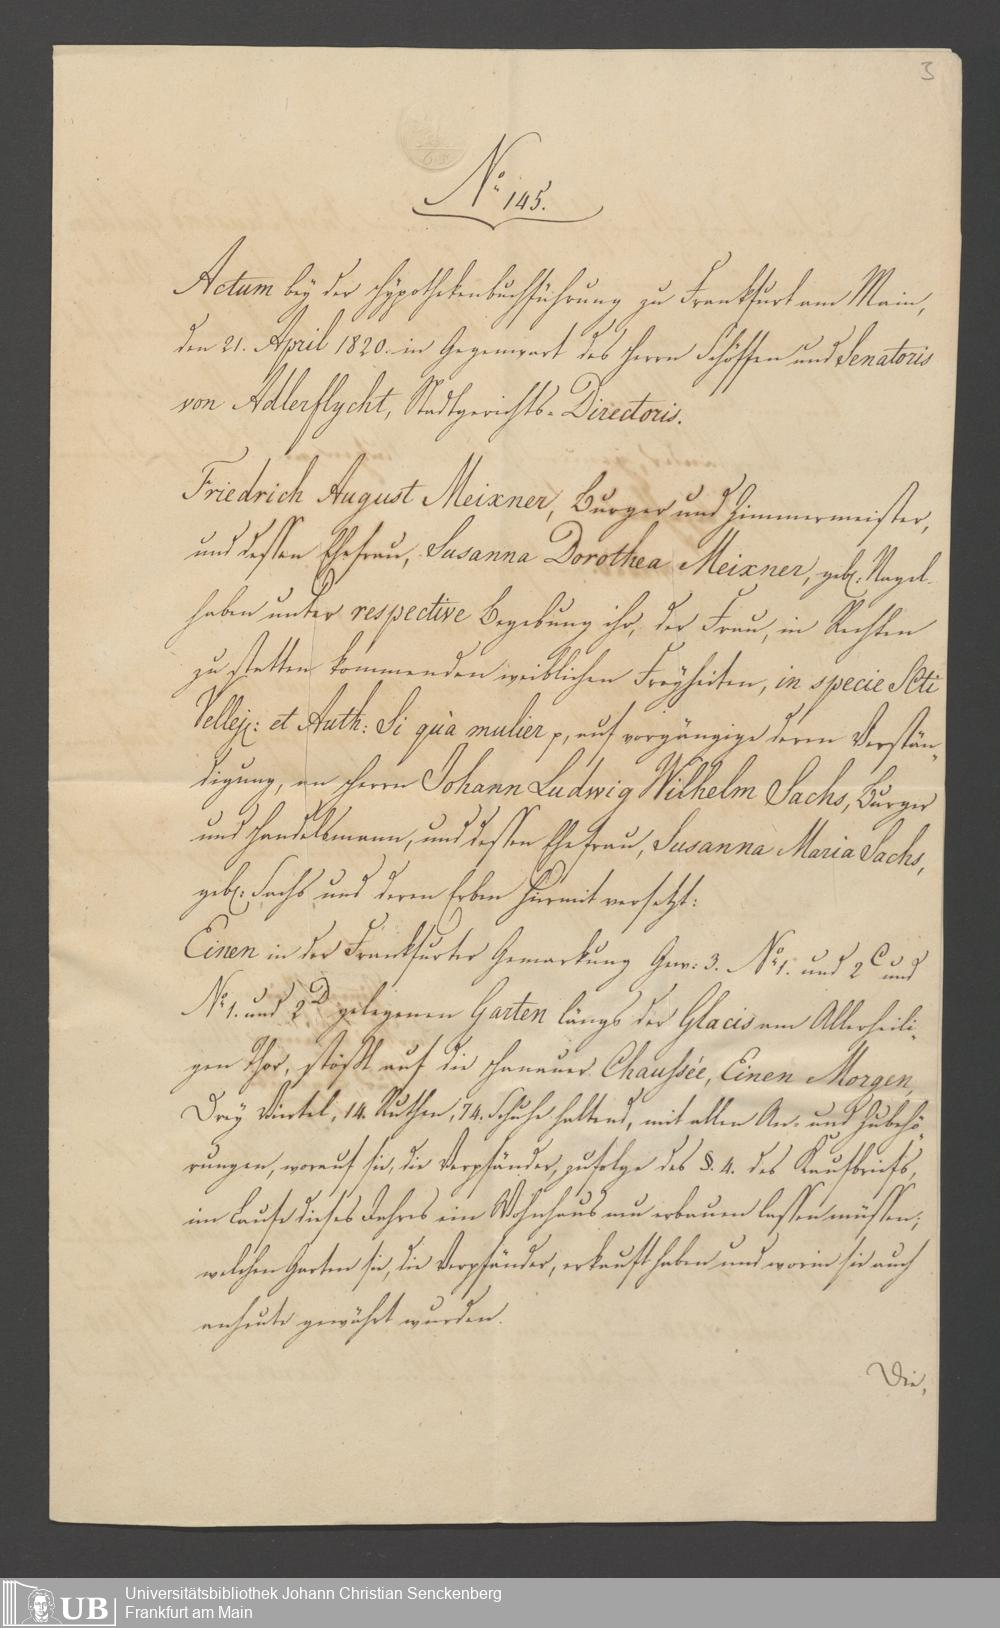 3
No. 145.
Actum bey der Hypothekenbuchführung zu Frankfurt am Main,
den 21. April 1820. in Gegenwart des Herrn Schöffen und Senatoris
von Adlerflycht, Stadtgerichts-Directoris.
Friedrich August Meixner, Burger und Zimmermeister,
und dessen Ehefrau, Susanna Dorothea Meixner, geb: Nagel
haben unter respective Begebung ihr, der Frau, in Rechten
zu statten kommenden weiblichen Freyheiten, in specie SCti
Vellej: et Auth: Si qua mulier p, auf vorgängige deren Verstän„
digung, an Herrn Johann Ludwig Wilhelm Sachs, Burger
und Handelsmann, und dessen Ehefrau, Susanna Maria Sachs,
geb: Sachs und deren Erben hiermit versetzt:
Einen in der Frankfurter Gemarkung Gew: 3. No 1. und 2 C und
No 1. und 2 D gelegenen Garten längs der Glacis am Allerheili„
gen Thor, stößt auf die Hanauer Chaussée, Einen Morgen,
Drey Viertel, 14. Ruthen, 74. Schuhe haltend, mit allen An- und Zubehö
rungen, worauf sie, die Verpfänder, zufolge des §. 4. des Kaufbriefs,
im Laufe dieses Jahres ein Wohnhaus neu erbauen lassen müssen;
welchen Garten sie, die Verpfänder, erkauft haben und worin sie auch
anheute gewährt wurden.
Die,
UB
Universitätsbibliothek Johann Christian Senckenberg
Frankfurt am Main